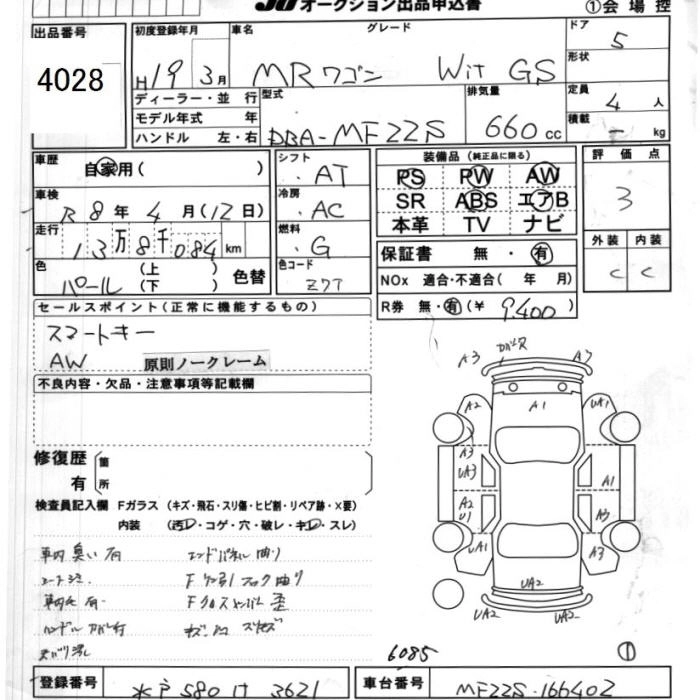 JU オークション出品申込書 ①会場控
出品番号 4028
初度登録年月 H19 3月
車名 グレード MRワゴン Wit GS
ドア 5
形状
ディーラー・並行
モデル年式 年
ハンドル 左・右
型式 DBA-MF22S
排気量 660 cc
定員 4 人
積載 - kg
車歴 自家用( )
シフト AT
装備品(純正品に限る)
PS PW AW
SR ABS エアB
本革 TV ナビ
評価点 3
車検 R8年4月(12日)
冷房 AC
走行 13万8千084 km
燃料 G
保証書 無・有
外装 内装
C C
色 パール (上)(下) 色替
色コード Z7T
NOx 適合・不適合( 年 月)
R券 無・有(¥ 9,400)
セールスポイント(正常に機能するもの)
スマートキー
AW 原則ノークレーム
不良内容・欠品・注意事項等記載欄
修復歴 有 箇所
検査員記入欄 Fガラス (キズ・飛石・スリ傷・ヒビ割・リペア跡・×要)
内装 (汚レ・コゲ・穴・破レ・キレ・スレ)
車内臭い有 エンドパネル曲り
シートシミ F ケン引フック曲り
F クロスメンバー歪
A3 A3
A2 A1 UA1
A3
UA3 A1
A2
U1 A3
UA1 A3
UA2
UA2 UA2
6085 ①
登録番号 水戸 580 け 3621
車台番号 MF22S-166402